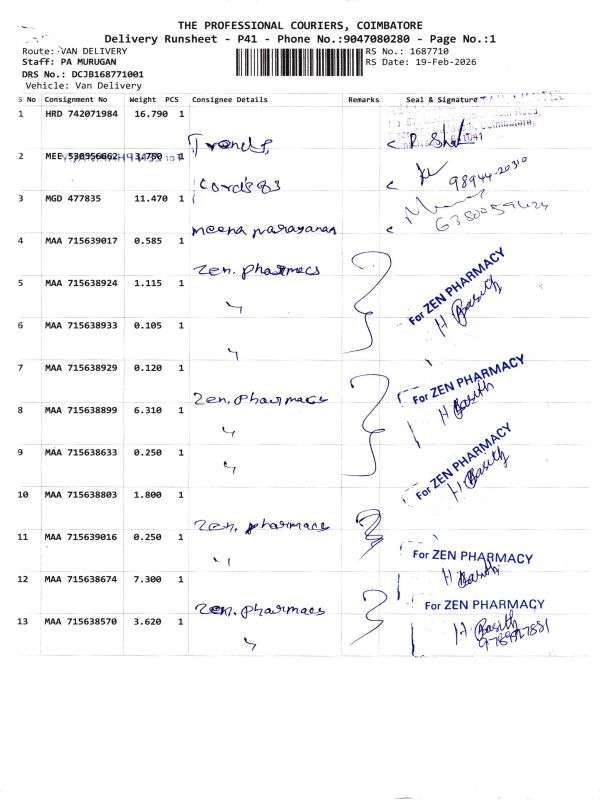 THE PROFESSIONAL COURIERS, COIMBATORE
Delivery Runsheet - P41 - Phone No.:9047080280 - Page No.:1
Route: VAN DELIVERY
RS No.: 1687710
Staff: PA MURUGAN
RS Date: 19-Feb-2026
DRS No.: DCJB168771001
Vehicle: Van Delivery
S No Consignment No Weight PCS Consignee Details Remarks Seal & Signature
1 HRD 742071984 16.790 1
Trends
641041
2 MEE 530956662 3.750 1
98944-20310
3 MGD 477835 11.470 1
6380059424
meena narayanan
4 MAA 715639017 0.585 1
Zen. pharmacs
For ZEN PHARMACY
5 MAA 715638924 1.115 1
〃
H Basith
6 MAA 715638933 0.105 1
〃
7 MAA 715638929 0.120 1
Zen. pharmacs
For ZEN PHARMACY
H Basith
8 MAA 715638899 6.310 1
〃
9 MAA 715638633 0.250 1
〃
For ZEN PHARMACY
H Basith
10 MAA 715638803 1.800 1
Zen. pharmacs
11 MAA 715639016 0.250 1
〃
For ZEN PHARMACY
H Basith
12 MAA 715638674 7.300 1
Zen. pharmacs
For ZEN PHARMACY
13 MAA 715638570 3.620 1
〃
H Basith